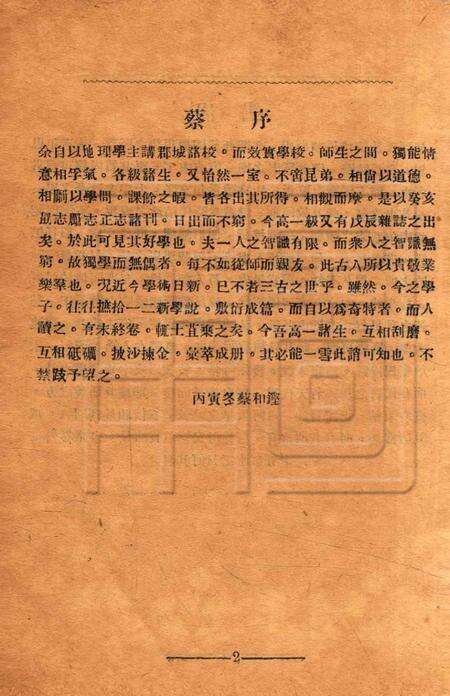 蔡序
余自以地理學主講郡城諸校。而效實學校。師生之間。獨能情
意相孚氣。各級諸生。又怡然一室。不啻昆弟。相尙以道德。
相勵以學問。課餘之暇。皆各出其所得。相觀而摩。是以癸亥
勵志正志諸刊。日出而不窮。今高一級又有戊辰雜誌之出
矣。於此可見其好學也。夫一人之智識有限。而衆人之智識無
窮。故獨學而無偶者。每不如從師而親友。此古人所以貴敬業
樂羣也。况近今學術日新。已不若三古之世乎。雖然。今之學
子。往往摭拾一二新學說。敷衍成篇。而自以爲奇特者。而人
讀之。有未終卷。輒土苴棄之矣。今吾高一諸生。互相刮磨。
互相砥礪。披沙揀金。彙萃成册。其必能一雪此誚可知也。不
禁跂予望之。
丙寅冬蔡和鏗
2